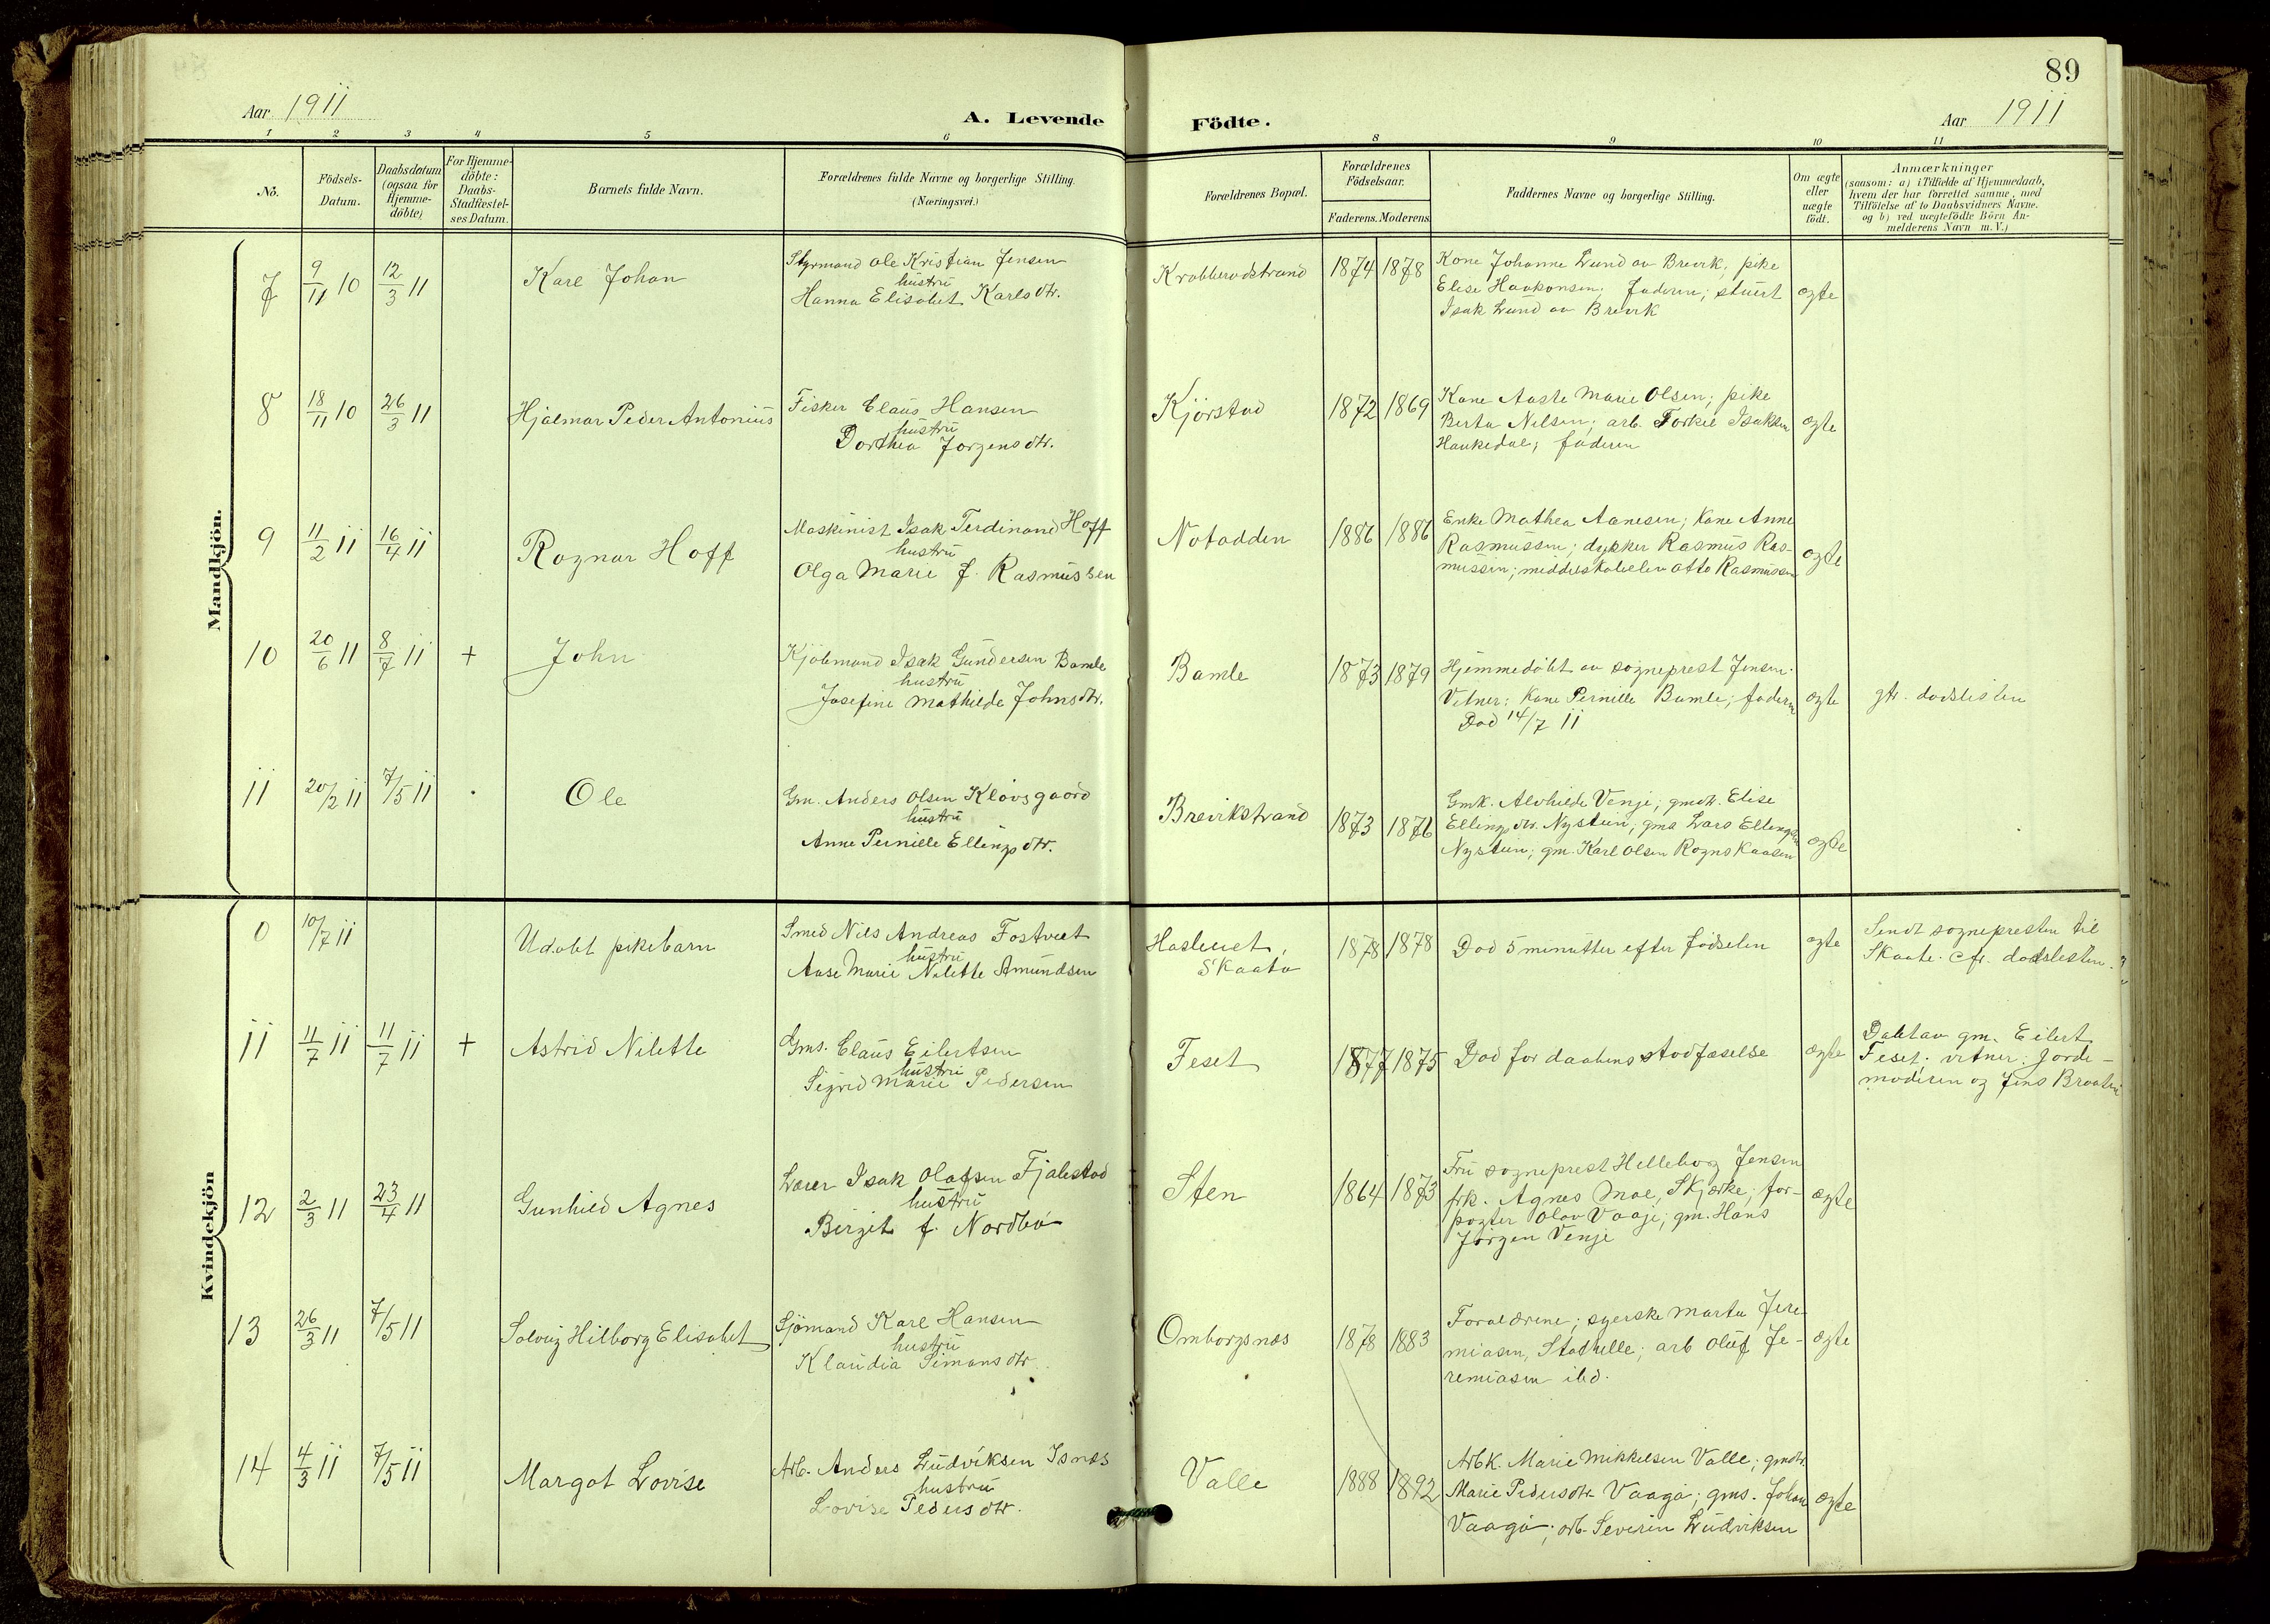 89
Aar 1911
A. Levende Födte.
Aar 1911
1 2 3 4 5 6 8 9 10 11
No.
Födsels-
Datum.
Daabsdatum
(ogsaa for
Hjemme-
döbte)
For Hjemme-
döbte:
Daabs-
Stadfæstel-
ses Datum.
Barnets fulde Navn.
Forældrenes fulde Navne og borgerlige Stilling.
(Næringsvei.)
Forældrenes Bopæl.
Forældrenes
Födselsaar.
Faderens. Moderens.
Faddernes Navne og borgerlige Stilling.
Om ægte
eller
uægte
födt.
Anmærkninger
(saasom: a) i Tilfælde af Hjemmedaab,
hvem der har forrettet samme, med
Tilföielse af to Daabsvidners Navne.
og b) ved uægtefödte Börn An-
melderens Navn m.V.)
Mandkjön.
7 9/11 10 12/3 11 Karl Johan
Styrmand Ole Kristian Jensen
hustru
Hanna Elisabet Karlsdtr.
Krabberødstrand 1874 1878
Kone Johanne Lund av Brevik, pike
Elise Haakonsen, faderen; stuert
Isak Lund av Brevik
ægte
8 18/11 10 26/3 11 Hjalmar Peder Antonius
Fisker Claus Hansen
hustru
Dorthea Jørgensdtr.
Kjörstad 1872 1869
Kone Aaste Marie Olsen; pike
Berta Nilsen; arb. Torkil Isaksen
Haukedal; faderen
ægte
9 11/2 11 16/4 11 Ragnar Hoff
Maskinist Isak Ferdinand Hoff
hustru
Olga Marie f. Rasmussen
Notodden 1886 1886
Enke Mathea Aanesen; kone Anne
Rasmussen; dykker Rasmus Ras-
mussen; middelskoleelev Otto Rasmussen
ægte
10 20/6 11 8/7 11 + John
Kjöbmand Isak Gundersen Bamle
hustru
Josefine Mathilde Johnsdtr.
Bamle 1873 1879
Hjemmedöbt av sogneprest Jensen.
Vitner: kone Pernille Bamle; faderen
Död 14/7 11
ægte
cfr. dødslisten
11 20/2 11 7/5 11 Ole
Gm. Anders Olsen Klovsgaard
hustru
Anne Pernille Ellingsdtr.
Brevikstrand 1873 1876
Gmk. Alvhilde Venje; gmdtr. Elise
Ellingsdtr. Nystein; gms Lars Ellingsen
Nystein; gm. Karl Olsen Rognskaasen
ægte
Kvindekjön
0 10/7 11 Udøbt pikebarn
Smed Nils Andreas Fostvedt
hustru
Aase Marie Nilette Amundsen
Skaatø 1878 1878
Død 5 minutter efter fødselen
ægte
Sendt sognepresten til
Skaatø. Cfr. dødslisten.
11 11/7 11 11/7 11 + Astrid Nilette
Gms. Claus Eilertsen
hustru
Sigrid Marie Pedersen
Feset 1877 1875
Død før daabens stadfæstelse
ægte
Døbt av gm. Eilert
Feset; vitner: Jorde-
moderen og Jens Braaten
12 2/3 11 23/4 11 Gunhild Agnes
Lærer Isak Olafsen Fjalestad
hustru
Birgit f. Nordbö
Sten 1864 1873
Fru sogneprest Hilleborg Jensen
frk. Agnes Moe, Skjærke; for-
pagter Olav Vaaje; gm. Hans
Jörgen Venje
ægte
13 26/3 11 7/5 11 Solveig Hilborg Elisabet
Sjömand Karl Hansen
hustru
Klaudia Simonsdtr.
Omborgsnæs 1878 1883
Forældrene; syerske Marta Jere-
miasen, Stathelle; arb Oluf Je-
remiasen ibd.
ægte
14 4/3 11 7/5 11 Margot Lovise
Arb. Anders Ludviksen Isnæs
hustru
Lovise Pedersdtr.
Valle 1888 1892
Arbk. Marie Mikkelsen Valle; gmdtr.
Marie Pedersdtr. Vaagø; gms. Johan
Vaagø; arb. Severin Ludviksen
ægte